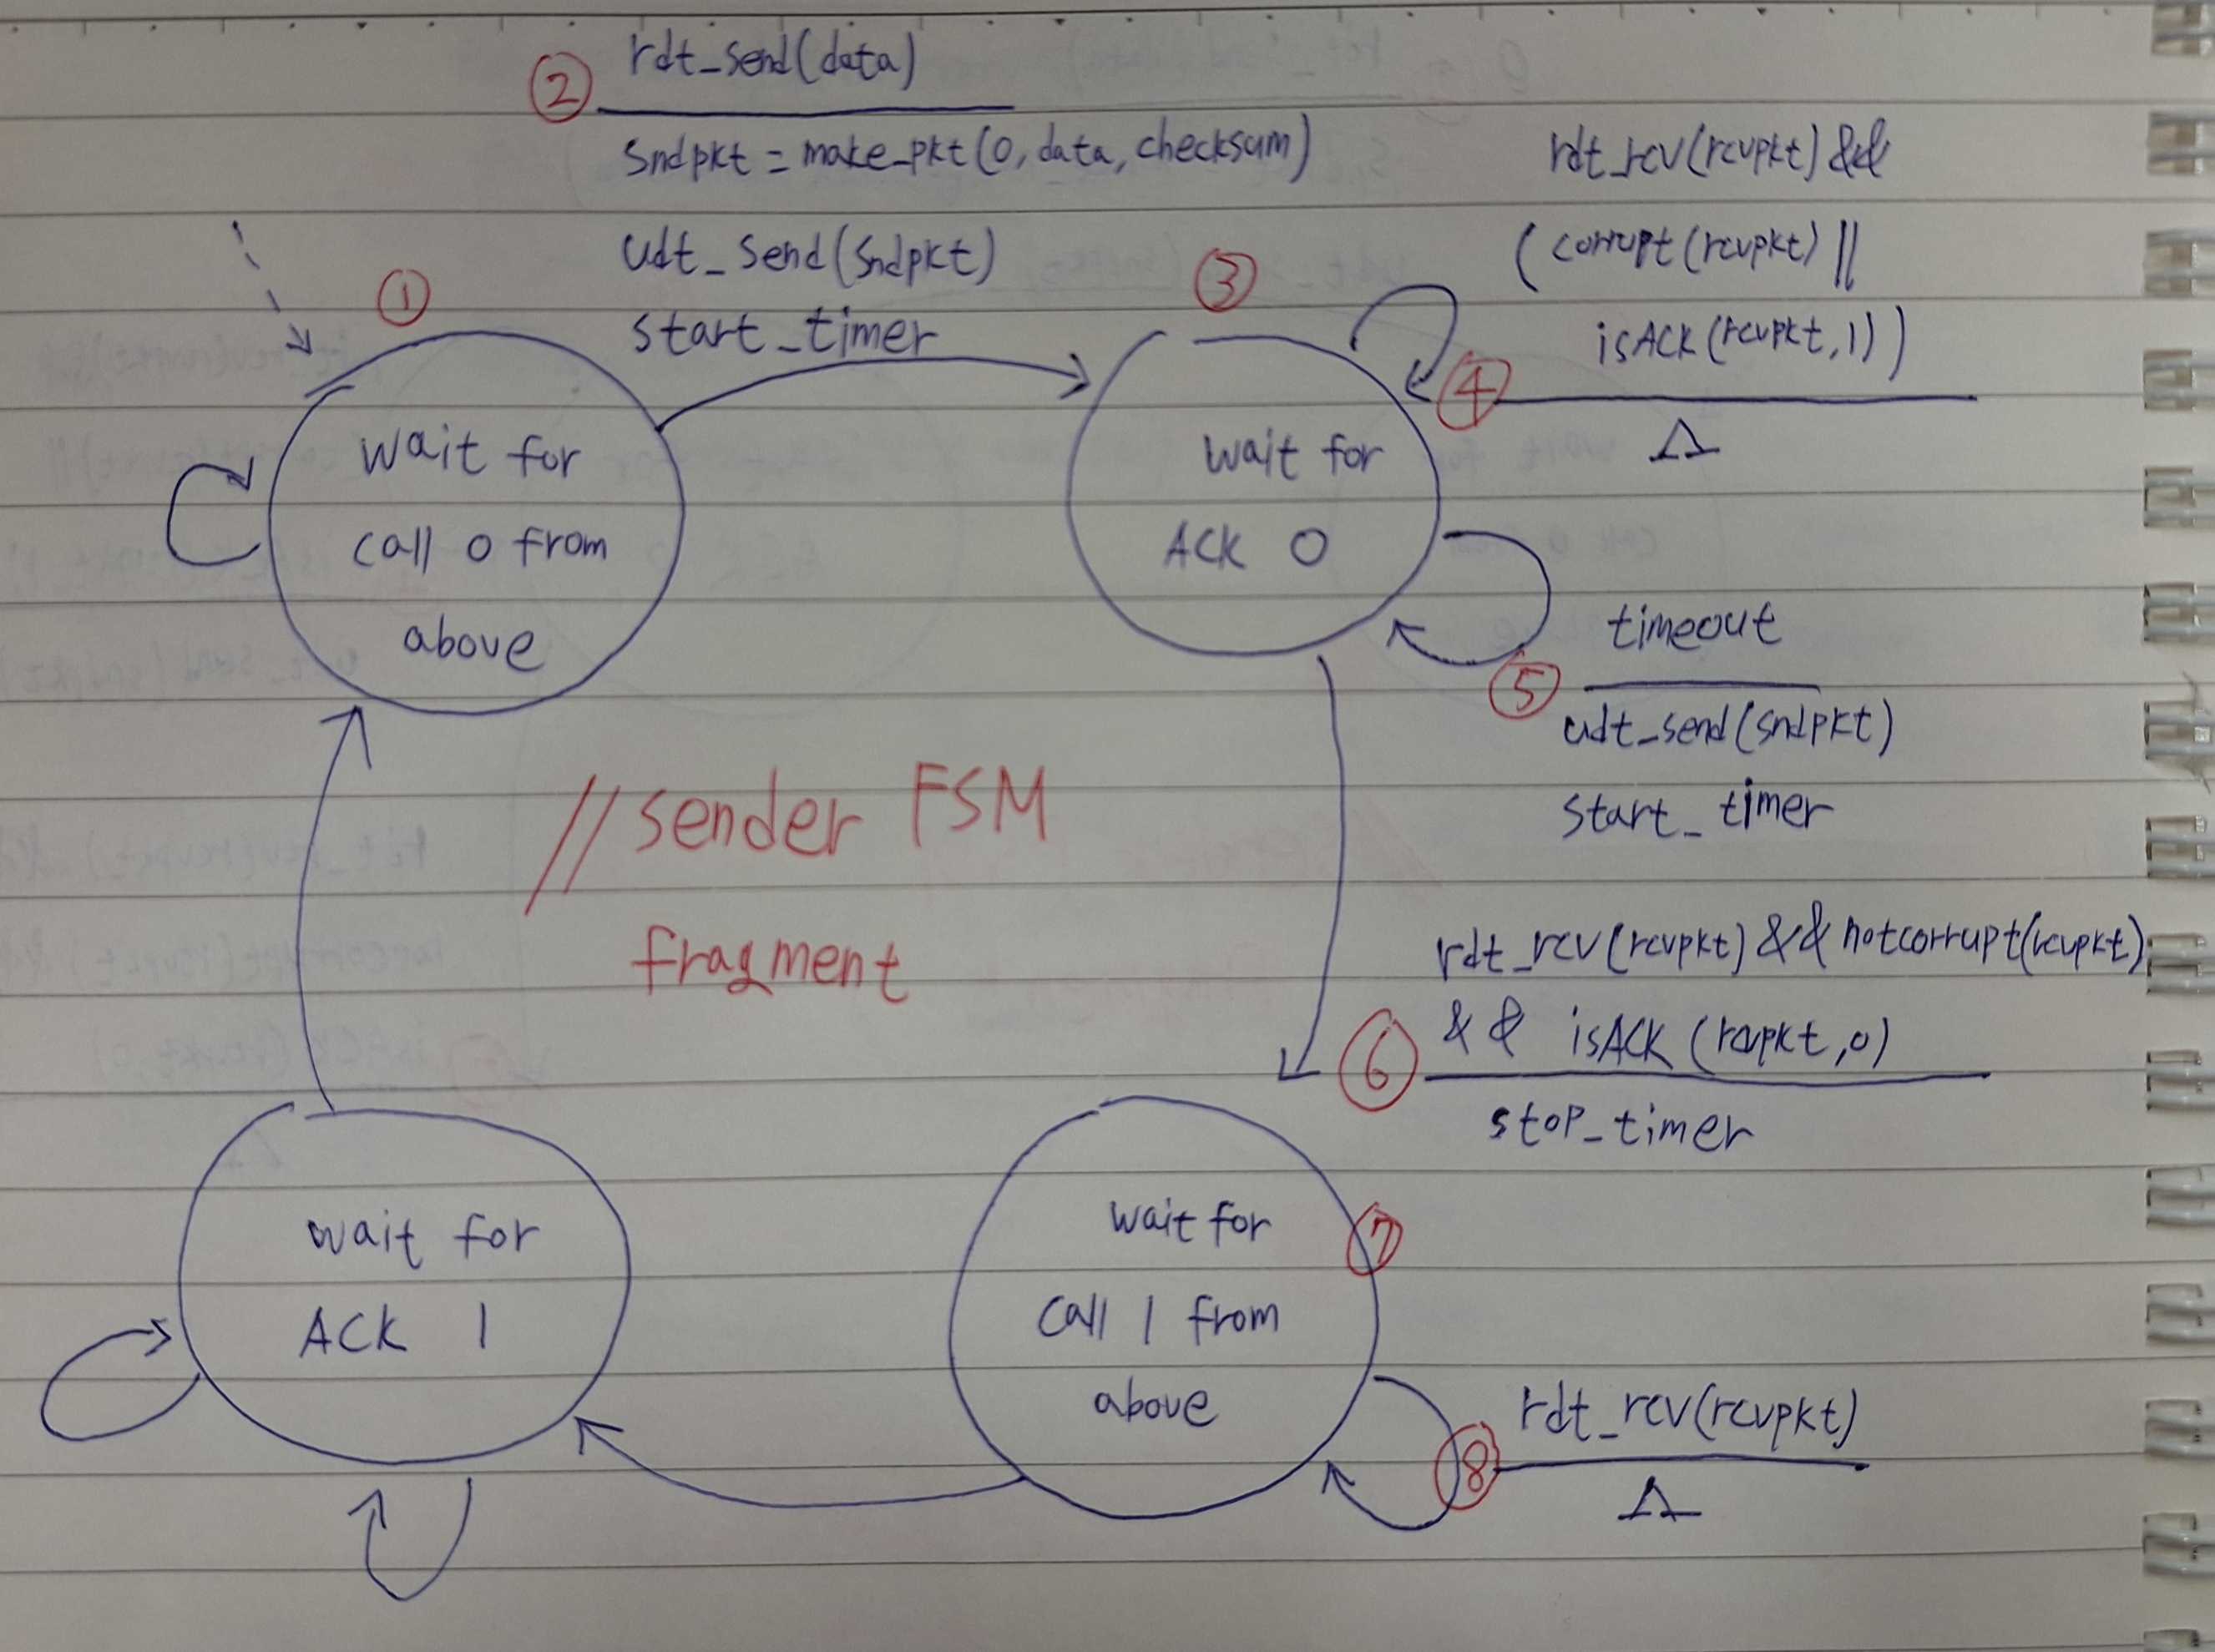 ② rdt_send(data)
sndpkt = make_pkt(0, data, checksum)
udt_send(sndpkt)
start_timer
①
wait for
call 0 from
above
③
wait for
ACK 0
rdt_rcv(rcvpkt) &&
( corrupt(rcvpkt) ||
isACK(rcvpkt,1) )
④
Λ
timeout
⑤
udt_send(sndpkt)
start_timer
// sender FSM
fragment
rdt_rcv(rcvpkt) && notcorrupt(rcvpkt)
⑥ && isACK (rcvpkt,0)
stop_timer
wait for
ACK 1
⑦
wait for
call 1 from
above
rdt_rcv(rcvpkt)
⑧
Λ